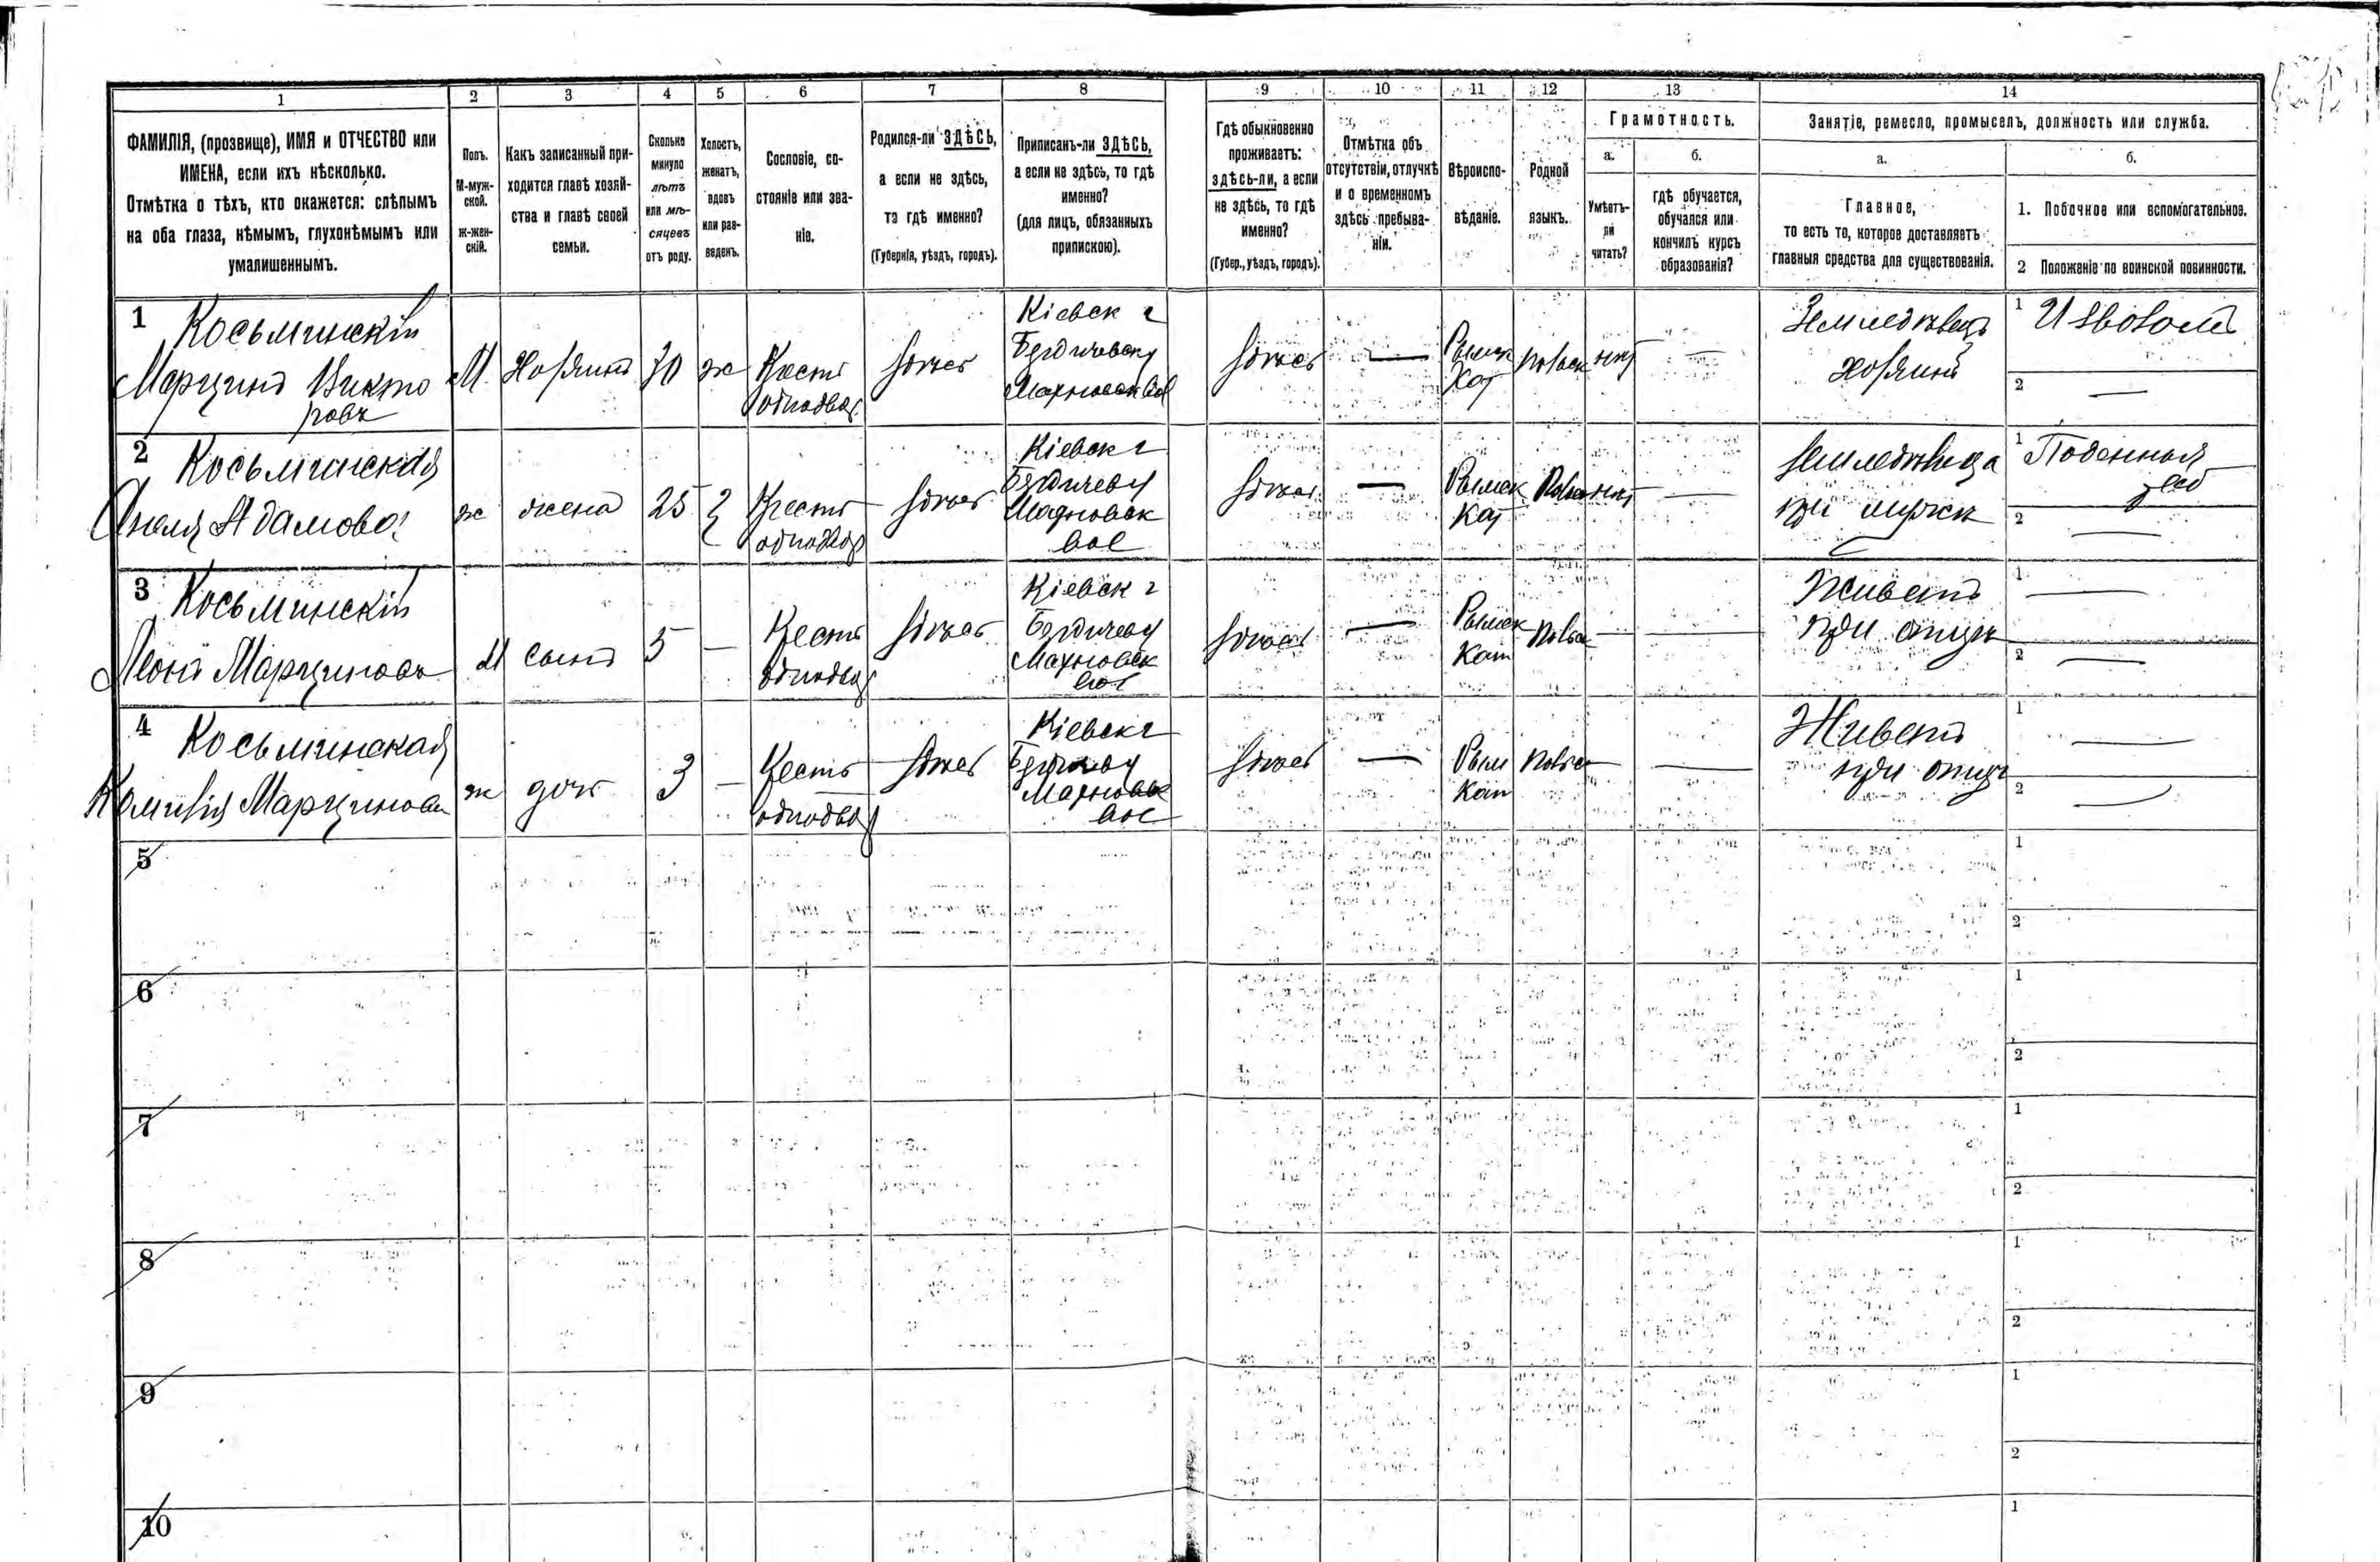 1 2 3 4 5 6 7 8 9 10 11 12 13 14
ФАМИЛІЯ, (прозвище), ИМЯ и ОТЧЕСТВО или
ИМЕНА, если ихъ нѣсколько.
Отмѣтка о тѣхъ, кто окажется: слѣпымъ
на оба глаза, нѣмымъ, глухонѣмымъ или
умалишеннымъ.
Полъ.
М-муж-
ской.
Ж-жен-
скій.
Какъ записанный при-
ходится главѣ хозяй-
ства и главѣ своей
семьи.
Сколько
минуло
лѣтъ
или мѣ-
сяцевъ
отъ роду.
Холостъ,
женатъ,
вдовъ
или раз-
веденъ.
Сословіе, со-
стояніе или зва-
ніе.
Родился-ли ЗДѢСЬ,
а если не здѣсь,
то гдѣ именно?
(Губернія, уѣздъ, городъ).
Приписанъ-ли ЗДѢСЬ,
а если не здѣсь, то гдѣ
именно?
(для лицъ, обязанныхъ
припискою).
Гдѣ обыкновенно
проживаетъ:
здѣсь-ли, а если
не здѣсь, то гдѣ
именно?
(Губер., уѣздъ, городъ).
Отмѣтка объ
отсутствіи, отлучкѣ
и о временномъ
здѣсь пребыва-
ніи.
Вѣроиспо-
вѣданіе.
Родной
языкъ.
Грамотность.
а.
Умѣетъ-
ли
читать?
б.
гдѣ обучается,
обучался или
кончилъ курсъ
образованія?
Занятіе, ремесло, промыселъ, должность или служба.
а.
Главное,
то есть то, которое доставляетъ
главныя средства для существованія.
б.
1. Побочное или вспомогательное.
2 Положеніе по воинской повинности.
1
Косьминскій
Марцинъ Викто
ровъ
М
Хозяинъ
30
ж
Крест
однодвор
здѣсь
Кіевск г
Бердичевск у
Махновск вол
здѣсь
—
Римск
Кат
польск
нѣт
—
Земледѣлецъ
хозяинъ
1 Извозомъ
2 —
2
Косьминская
Анеля Адамова
ж
жена
25
З
Крестъ
однодвор
здѣсь
Кіевск г
Бердичев у
Махновск
вол
здѣсь
—
Римск
Кат
Польск
нѣт
—
Земледѣлица
при мужѣ
1 Поденная
2 —
3
Косьминскій
Леонъ Марциновъ
М
сынъ
5
—
Крестъ
однодвор
здѣсь
Кіевск г
Бердичев у
Махновск
вол
здѣсь
—
Римск
Кат
Польс
—
—
Живетъ
при отцѣ
1 —
2 —
4
Косьминская
Камилія Марцинова
ж
дочь
3
—
Крестъ
однодвор
здѣсь
Кіевск г
Бердичев у
Махновск
вол
здѣсь
—
Рим
Кат
Польс
—
—
Живетъ
при отцѣ
1 —
2 —
5
1
2
6
1
2
7
1
2
8
1
2
9
1
2
10
1